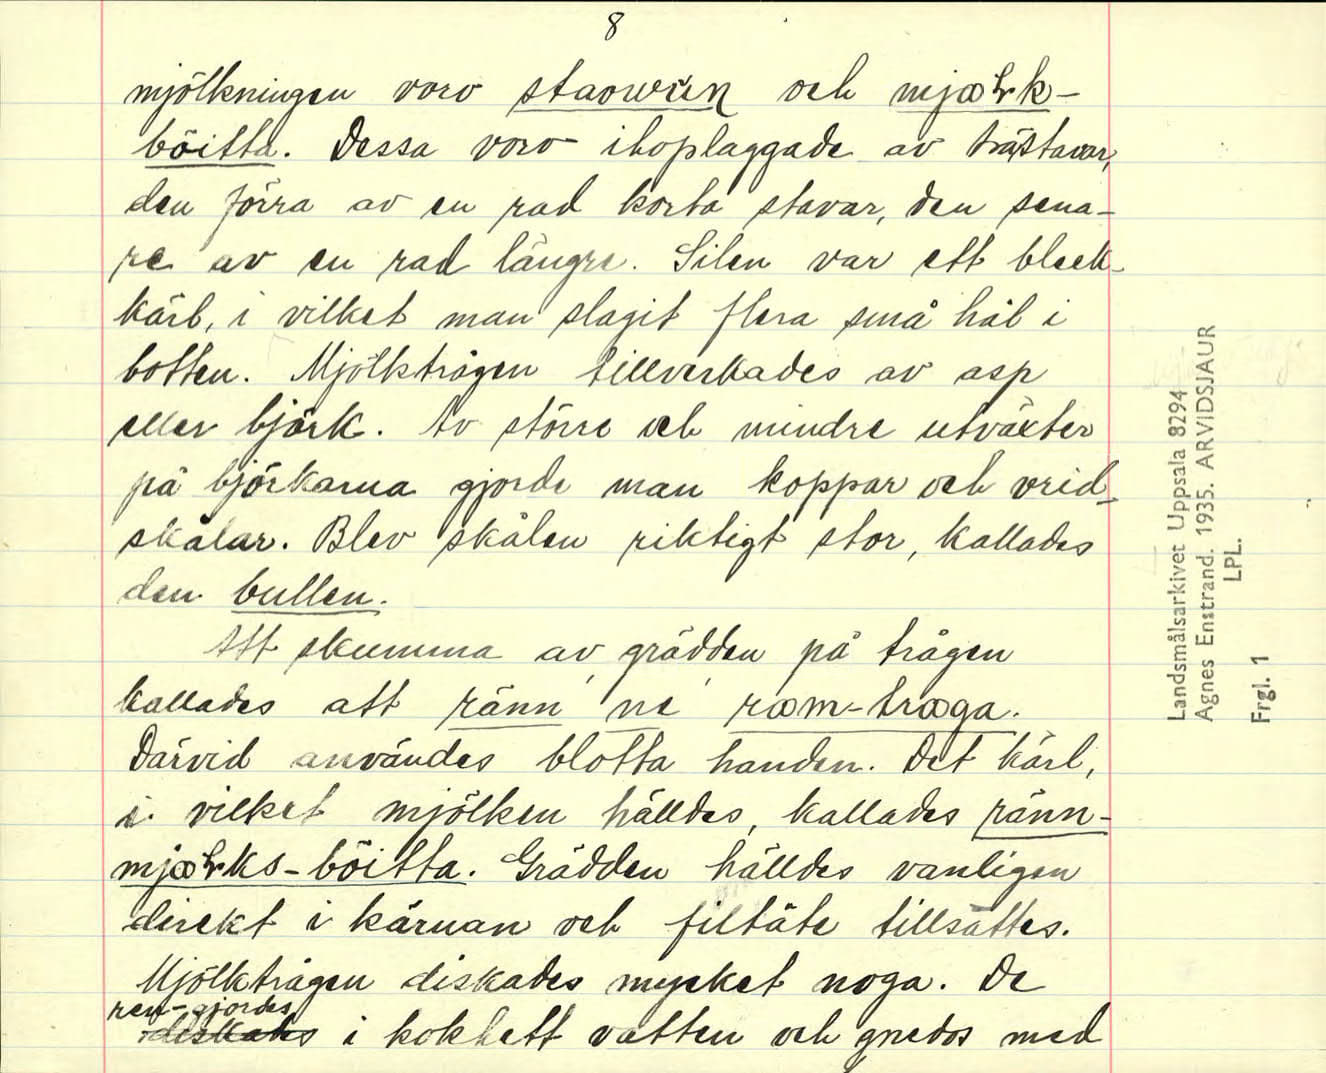 8
mjölkningen voro staowún och mjæLk-
böitta. Dessa voro ihoplaggade av trästavar,
den förra av en rad korta stavar, den sena-
re av en rad längre. Silen var ett bleck-
kärl, i vilket man slagit flera små hål i
botten. Mjölktrågen tillverkades av asp
eller björk. Av större och mindre utväxter
på björkarna gjorde man koppar och vrid-
skålar. Blev skålen riktigt stor, kallades
den bullen.
Att skumma av grädden på trågen
kallades att ränn ne ræm-træga.
Därvid användes blotta handen. Det kärl,
i vilket mjölken hälldes, kallades ränn-
mjæLks-böitta. Grädden hälldes vanligen
direkt i kärnan och filtäte tillsattes.
Mjölktrågen diskades mycket noga. De
ren-gjordes
diskades i kokhett vatten och gnedos med
Landsmålsarkivet Uppsala 8294
Agnes Enstrand. 1935. ARVIDSJAUR
LPL.
Frgl. 1